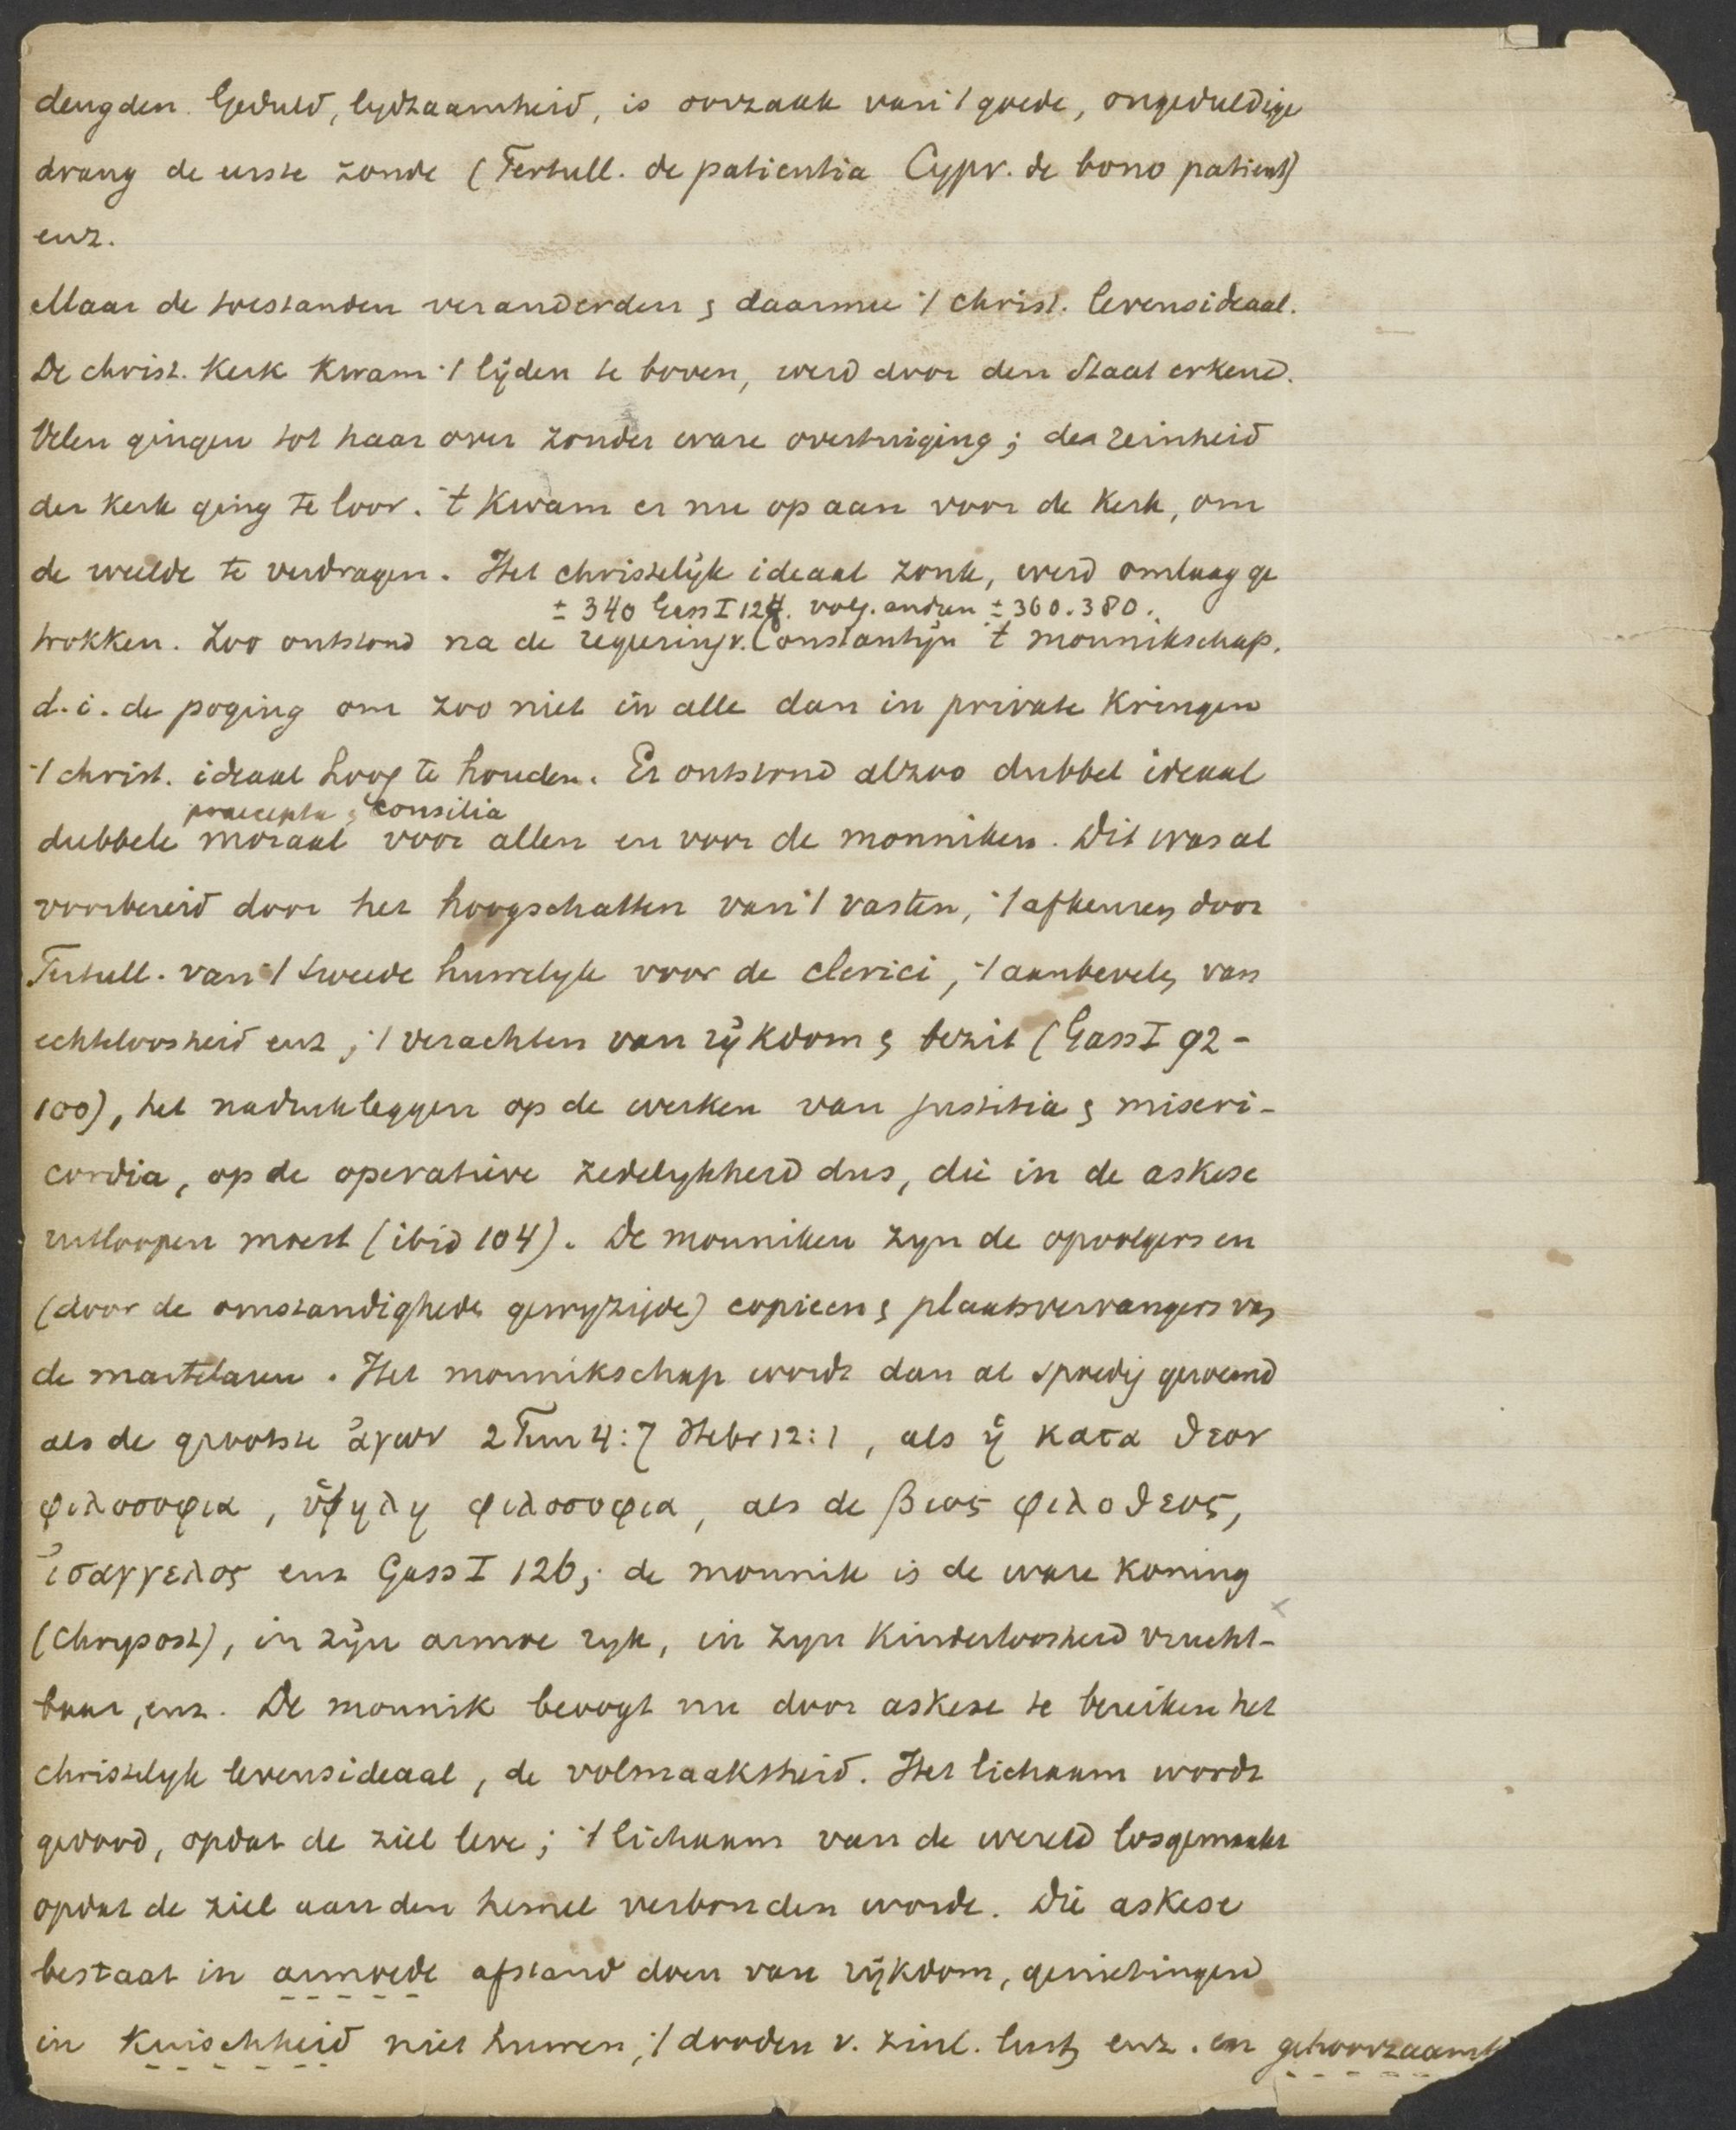 deugden. Geduld, lydzaamheid, is oorzaak van 't goede, ongeduldige
drang de eerste zonde (Tertull. de patientia Cypr. de bono patient)
enz.
Maar de toestanden veranderden & daarmee 't christ. levensideaal.
De christ. Kerk Kwam 't lijden te boven, werd door den Staat erkend.
Velen gingen tot haar over zonder ware overtuiging; de reinheid
der Kerk ging te loor. 't Kwam er nu op aan voor de Kerk, om
de weelde te verdragen. Het christelijk ideaal zonk, werd omlaag ge
± 340 Gass I 124. volg. andren ± 360.380.
trokken. Zoo ontstond na de regeering v. Constantijn 't monnikschap.
d.i. de poging om zoo niet in alle dan in private Kringen
't christ. ideaal hoog te houden. Er ontstond alzoo dubbel ideaal
praecepta & consilia
dubbele moraal voor allen en voor de monniken. Dit was al
voorbereid door het hoogschatten van 't vasten, 't afkeuren door
Tertull. van 't tweede huwelyk voor de clerici, 't aanbevelen van
echteloosheid enz, 't verachten van rijkdom & bezit (Gass I 92-
100), het nadruk leggen op de werken van justitia & miseri-
cordia, op de operatieve zedelykheid dus, die in de askese
uitloopen moest (ibid 104). De monniken zyn de opvolgers en
(door de omstandigheden gewyzigde) copieen & plaatsvervangers van
de martelaren. Het monnikschap wordt dan al spoedig geroemd
als de grootste ἀγων 2 Tim 4:7 Hebr 12:1, als ἡ κατα θεον
φιλοσοφια, ὑψηλη φιλοσοφια, als de βιος φιλοθεος,
ἰσαγγελος enz Gass I 126; de monnik is de ware Koning
(Chrysost), in zijn armoe ryk, in zyn Kinderloosheid vrucht-
baar, enz. De monnik beoogt nu door askese te bereiken het
christelyk levensideaal, de volmaaktheid. Het lichaam wordt
gedood, opdat de ziel leve; 't lichaam van de wereld losgemaakt
opdat de ziel aan den hemel verbonden worde. Die askese
bestaat in armoede afstand doen van rijkdom, genietingen
in Kuischheid niet huwen, 't dooden v. zinl. lust enz. en gehoorzaamh